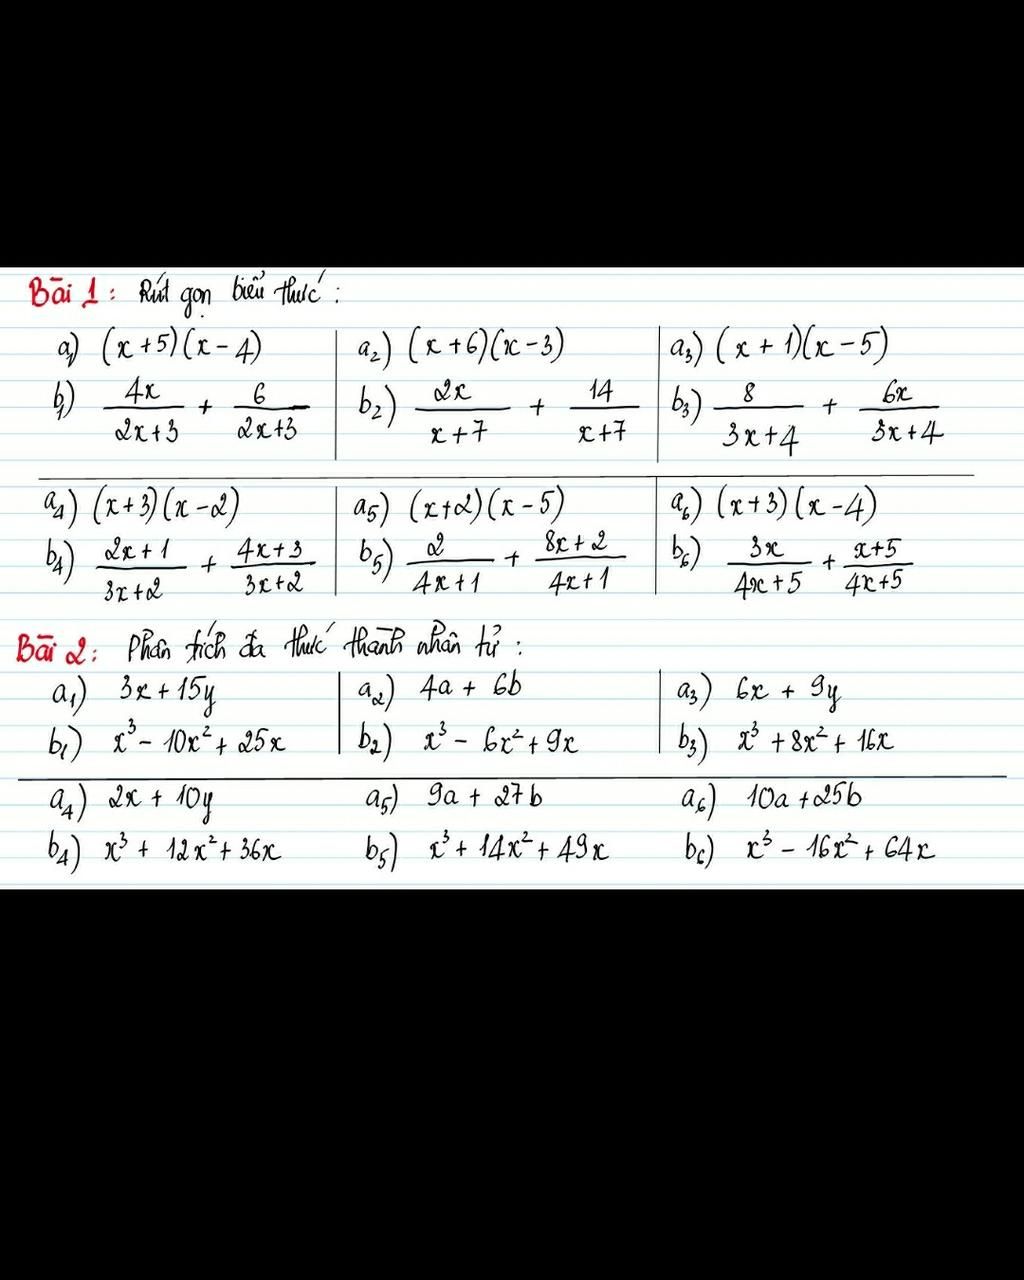 Bài 1: Rút gọn biểu thức:
a₁) (x+5)(x-4) a₂) (x+6)(x-3) a₃) (x+1)(x-5)
b₁) 4x/(2x+3) + 6/(2x+3) b₂) 2x/(x+7) + 14/(x+7) b₃) 8/(3x+4) + 6x/(3x+4)
a₄) (x+3)(x-2) a₅) (x+2)(x-5) a₆) (x+3)(x-4)
b₄) (2x+1)/(3x+2) + (4x+3)/(3x+2) b₅) 2/(4x+1) + (8x+2)/(4x+1) b₆) 3x/(4x+5) + (x+5)/(4x+5)
Bài 2: Phân tích đa thức thành nhân tử:
a₁) 3x+15y a₂) 4a + 6b a₃) 6x + 9y
b₁) x³ - 10x² + 25x b₂) x³ - 6x² + 9x b₃) x³ + 8x² + 16x
a₄) 2x + 10y a₅) 9a + 27b a₆) 10a + 25b
b₄) x³ + 12x² + 36x b₅) x³ + 14x² + 49x b₆) x³ - 16x² + 64x